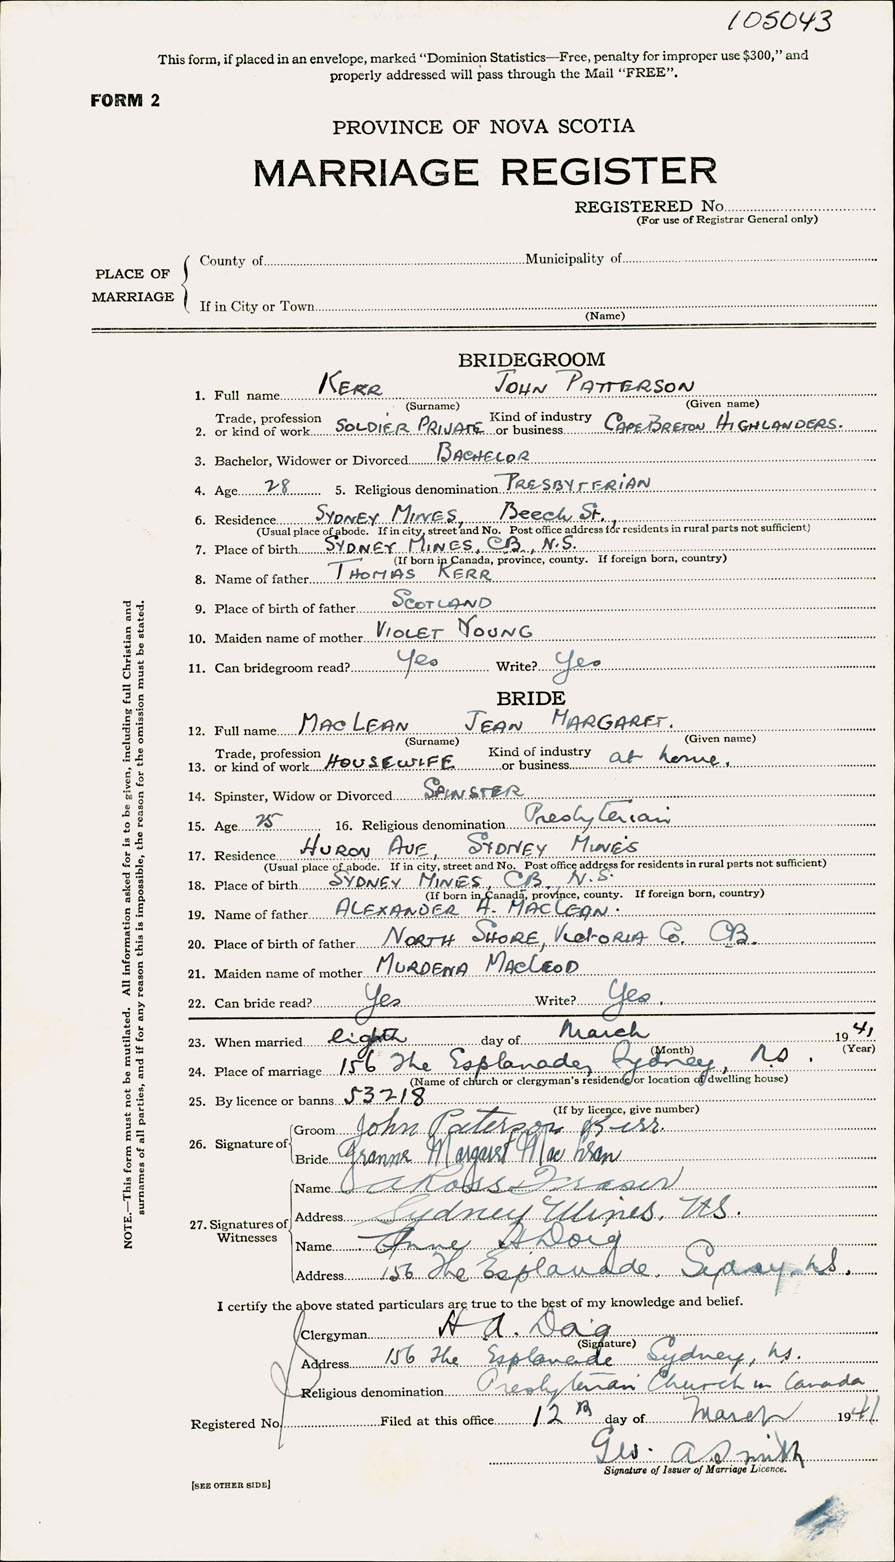 105043
This form, if placed in an envelope, marked “Dominion Statistics—Free, penalty for improper use $300,” and
properly addressed will pass through the Mail “FREE”.
FORM 2
PROVINCE OF NOVA SCOTIA
MARRIAGE REGISTER
REGISTERED No.
(For use of Registrar General only)
PLACE OF MARRIAGE
County of Municipality of
If in City or Town
(Name)
BRIDEGROOM
1. Full name KERR JOHN PATTERSON
(Surname) (Given name)
2. Trade, profession or kind of work SOLDIER PRIVATE Kind of industry or business CAPE BRETON HIGHLANDERS.
3. Bachelor, Widower or Divorced BACHELOR
4. Age 28 5. Religious denomination PRESBYTERIAN
6. Residence SYDNEY MINES, Beech St.,
(Usual place of abode. If in city, street and No. Post office address for residents in rural parts not sufficient)
7. Place of birth SYDNEY MINES, CB., N.S.
(If born in Canada, province, county. If foreign born, country)
8. Name of father THOMAS KERR
9. Place of birth of father SCOTLAND
10. Maiden name of mother VIOLET YOUNG
11. Can bridegroom read? Yes Write? Yes
BRIDE
12. Full name MACLEAN JEAN MARGARET.
(Surname) (Given name)
13. Trade, profession or kind of work HOUSEWIFE Kind of industry or business at home.
14. Spinster, Widow or Divorced SPINSTER
15. Age 25 16. Religious denomination Presbyterian
17. Residence HURON AVE, SYDNEY MINES
(Usual place of abode. If in city, street and No. Post office address for residents in rural parts not sufficient)
18. Place of birth SYDNEY MINES, CB., N.S.
(If born in Canada, province, county. If foreign born, country)
19. Name of father ALEXANDER A. MACLEAN.
20. Place of birth of father NORTH SHORE, VICTORIA Co. CB.
21. Maiden name of mother MURDENA MACLEOD
22. Can bride read? Yes Write? Yes.
23. When married eighth day of March 1941
(Month) (Year)
24. Place of marriage 156 The Esplanade, Sydney, N.S.
(Name of church or clergyman's residence or location of dwelling house)
25. By licence or banns 53218
(If by licence, give number)
26. Signature of Groom John Paterson Kerr.
Bride Margaret MacLean
27. Signatures of Witnesses
Name A Ross Fraser
Address Sydney Mines, N.S.
Name Anne H Doig
Address 156 The Esplanade, Sydney, N.S.
I certify the above stated particulars are true to the best of my knowledge and belief.
Clergyman H A. Doig
(Signature)
Address 156 The Esplanade Sydney, N.S.
Religious denomination Presbyterian Church in Canada
Registered No. Filed at this office 12th day of March 1941
Geo. A Smith
Signature of Issuer of Marriage Licence.
[SEE OTHER SIDE]
NOTE.—This form must not be mutilated. All information asked for is to be given, including full Christian and
surnames of all parties, and if for any reason this is impossible, the reason for the omission must be stated.